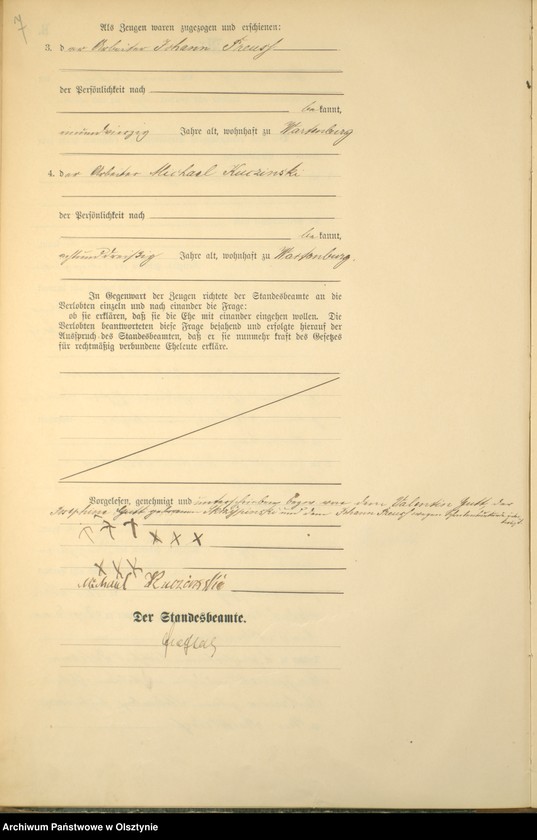 7
Als Zeugen waren zugezogen und erschienen:
3. der Arbeiter Johann Preuss
der Persönlichkeit nach
bekannt,
neunundvierzig Jahre alt, wohnhaft zu Wartenberg
4. der Arbeiter Michael Kuczinski
der Persönlichkeit nach
bekannt,
achtunddreißig Jahre alt, wohnhaft zu Wartenburg.
In Gegenwart der Zeugen richtete der Standesbeamte an die
Verlobten einzeln und nach einander die Frage:
ob sie erklären, daß sie die Ehe mit einander eingehen wollen. Die
Verlobten beantworteten diese Frage bejahend und erfolgte hierauf der
Ausspruch des Standesbeamten, daß er sie nunmehr kraft des Gesetzes
für rechtmäßig verbundene Eheleute erkläre.
Vorgelesen, genehmigt und unterschrieben bezw. von dem Valentin Gust, der
Josephine Gust geborenen und dem Johann Preuss wegen
† † † × × ×
× × ×
Michael Kuczinski
Der Standesbeamte.
Archiwum Państwowe w Olsztynie